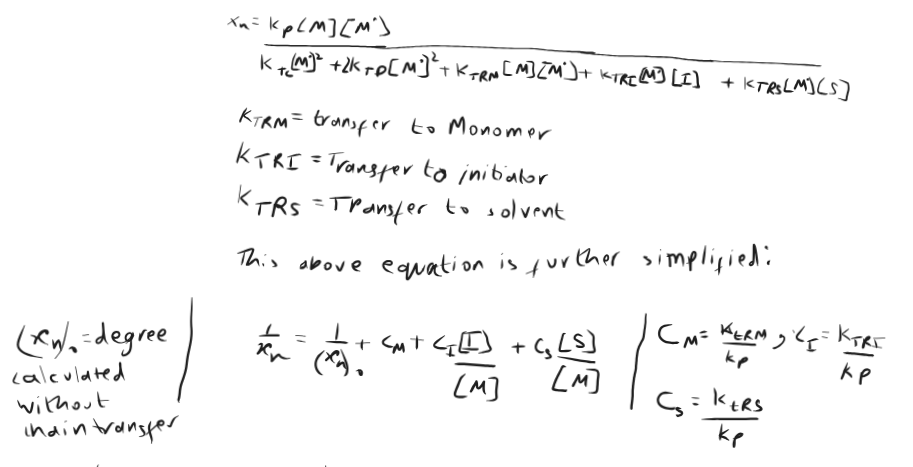 xₙ = kp[M][M·]
k_TC[M·]² + 2k_TD[M·]² + k_TRM[M][M·] + k_TRI[M·][I] + k_TRS[M·][S]
k_TRM = transfer to Monomer
k_TRI = Transfer to initiator
k_TRS = Transfer to solvent
This above equation is further simplified:
(xₙ)₀ = degree
calculated
without
chain transfer
1/xₙ = 1/(xₙ)₀ + C_M + C_I [I]/[M] + C_s [S]/[M]
C_M = k_tRM/kp, C_I = k_TRI/kp
C_s = k_tRS/kp